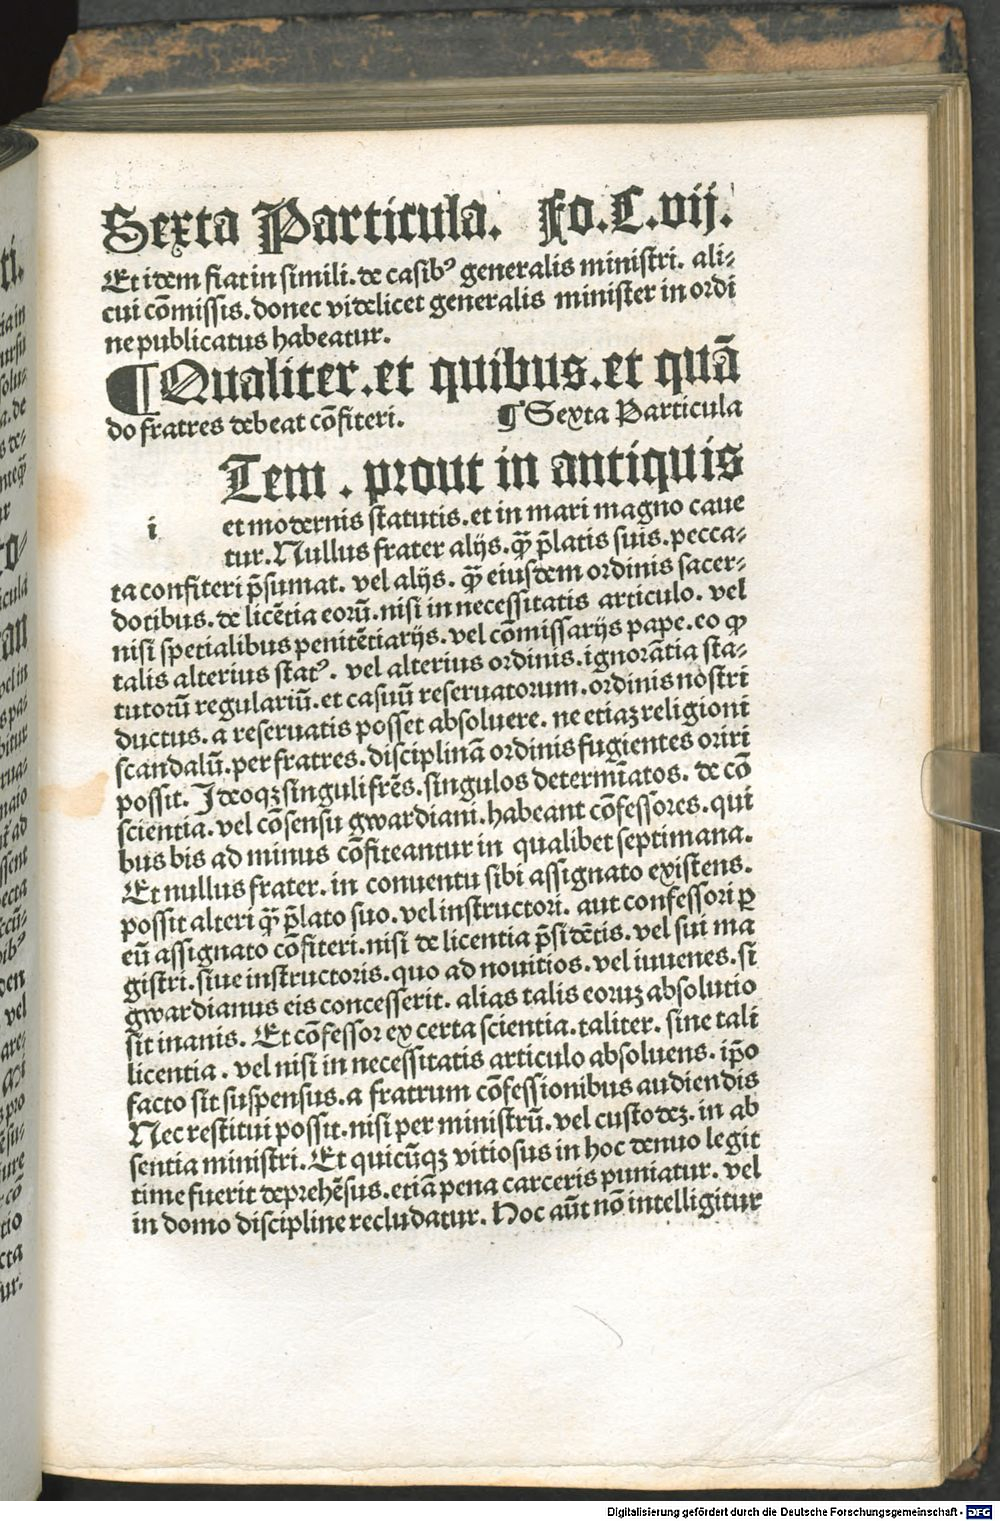 Sexta Particula. Fo.C.vij.
Et idem fiat in simili. de casibꝰ generalis ministri. ali-
cui cōmissis. donec videlicet generalis minister in ordi
ne publicatus habeatur.
¶ Qualiter. et quibus. et quā
do fratres debeat cōfiteri. ¶ Sexta Particula
Tem . prout in antiquis
i et modernis statutis. et in mari magno caue
tur. Nullus frater alijs. ꝙ̄ p̄latis suis. pecca-
ta confiteri p̄sumat. vel alijs. ꝙ̄ eiusdem ordinis sacer-
dotibus. de licētia eorū. nisi in necessitatis articulo. vel
nisi specialibus penitētiarijs. vel cōmissarijs pape. eo ꝙ
talis alterius statꝰ. vel alterius ordinis. ignorātia sta-
tutorū regulariū. et casuū reseruatorum. ordinis nostri
ductus. a reseruatis posset absoluere. ne etiaꝫ religioni
scandalū. per fratres. disciplinā ordinis fugientes oriri
possit. Ideoqꝫ singuli fr̄es. singulos determīatos. de cō
scientia. vel cōsensu gwardiani. habeant cōfessores. qui
bus bis ad minus cōfiteantur in qualibet septimana.
Et nullus frater. in conuentu sibi assignato existens.
possit alteri ꝙ̄ p̄lato suo. vel instructori. aut confessori ꝑ
eū assignato cōfiteri. nisi de licentia p̄sidētis. vel sui ma
gistri. siue instructoris. quo ad nouitios. vel iuuenes. si
gwardianus eis concesserit. alias talis eoruꝫ absolutio
sit inanis. Et cōfessor ex certa scientia. taliter. sine tali
licentia . vel nisi in necessitatis articulo absoluens. ip̄o
facto sit suspensus. a fratrum cōfessionibus audiendis
Nec restitui possit. nisi per ministrū. vel custodeꝫ. in ab
sentia ministri. Et quicūqꝫ vitiosus in hoc denuo legit
time fuerit deprehēsus. etiā pena carceris puniatur. vel
in domo discipline recludatur. Hoc aūt nō intelligitur
Digitalisierung gefördert durch die Deutsche Forschungsgemeinschaft - DFG